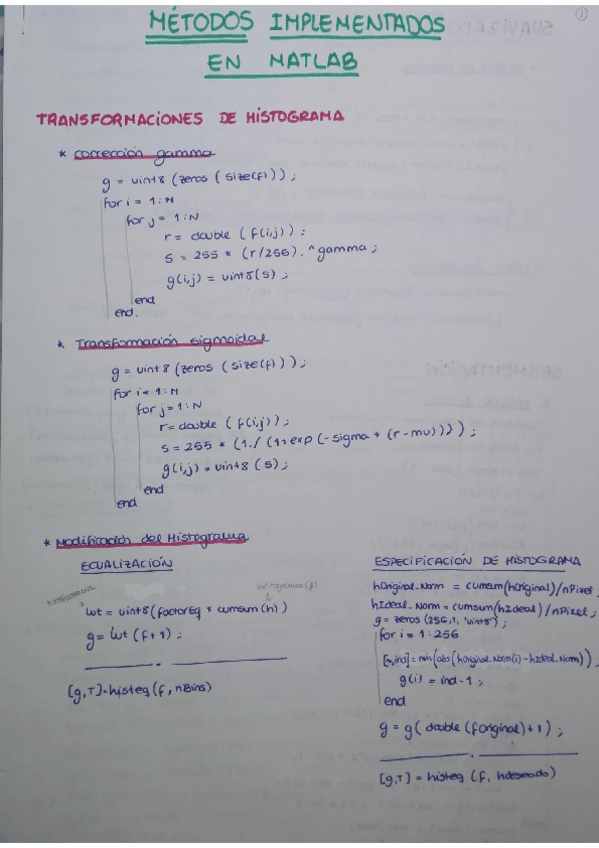 MÉTODOS IMPLEMENTADOS
EN MATLAB
TRANSFORMACIONES DE HISTOGRAMA
* corrección gamma
g = uint8 (zeros (size(f)));
for i = 1:M
for j = 1:N
r = double (f(i,j));
s = 255 * (r/256).^gamma;
g(i,j) = uint8(s);
end
end.
* Transformación sigmoidal
g = uint8 (zeros (size(f)));
for i = 1:M
for j = 1:N
r = double (f(i,j));
s = 255 * (1./(1+exp(-sigma * (r-mu))));
g(i,j) = uint8 (s);
end
end
* Modificación del Histograma
ECUALIZACIÓN
histograma(f)
lut = uint8(factorEq * cumsum(h))
g = lut (f+1);
[g,T]=histeq(f,nBins)
ESPECIFICACIÓN DE HISTOGRAMA
hOriginal_Norm = cumsum(hOriginal)/nPixel;
hIdeal_Norm = cumsum(hIdeal)/nPixel;
g = zeros (256,1,'uint8');
for i = 1:256
[m,ind]=min(abs(hOriginal_Norm(i)-hIdeal_Norm));
g(i) = ind-1;
end
g = g(double(fOriginal)+1);
[g,T] = histeq (f, hdeseado)